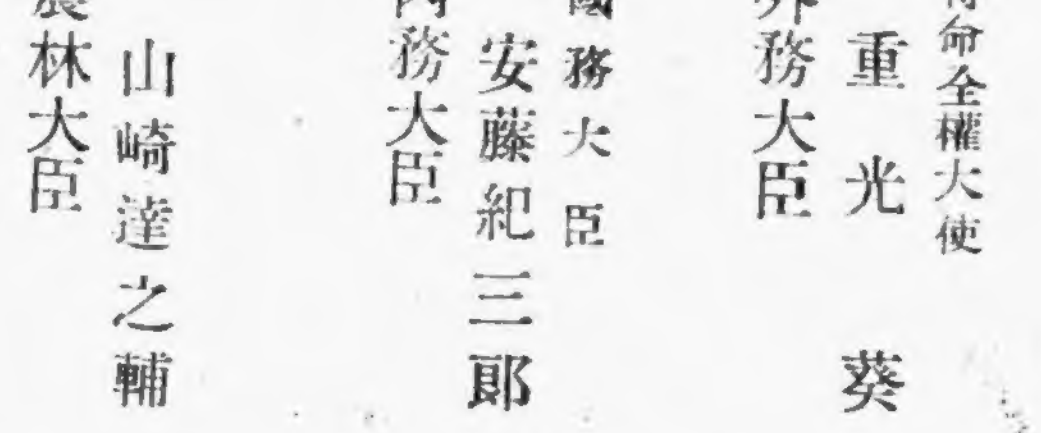 特命全權大使
重光葵
外務大臣
國務大臣
安藤紀三郎
內務大臣
山崎達之輔
農林大臣